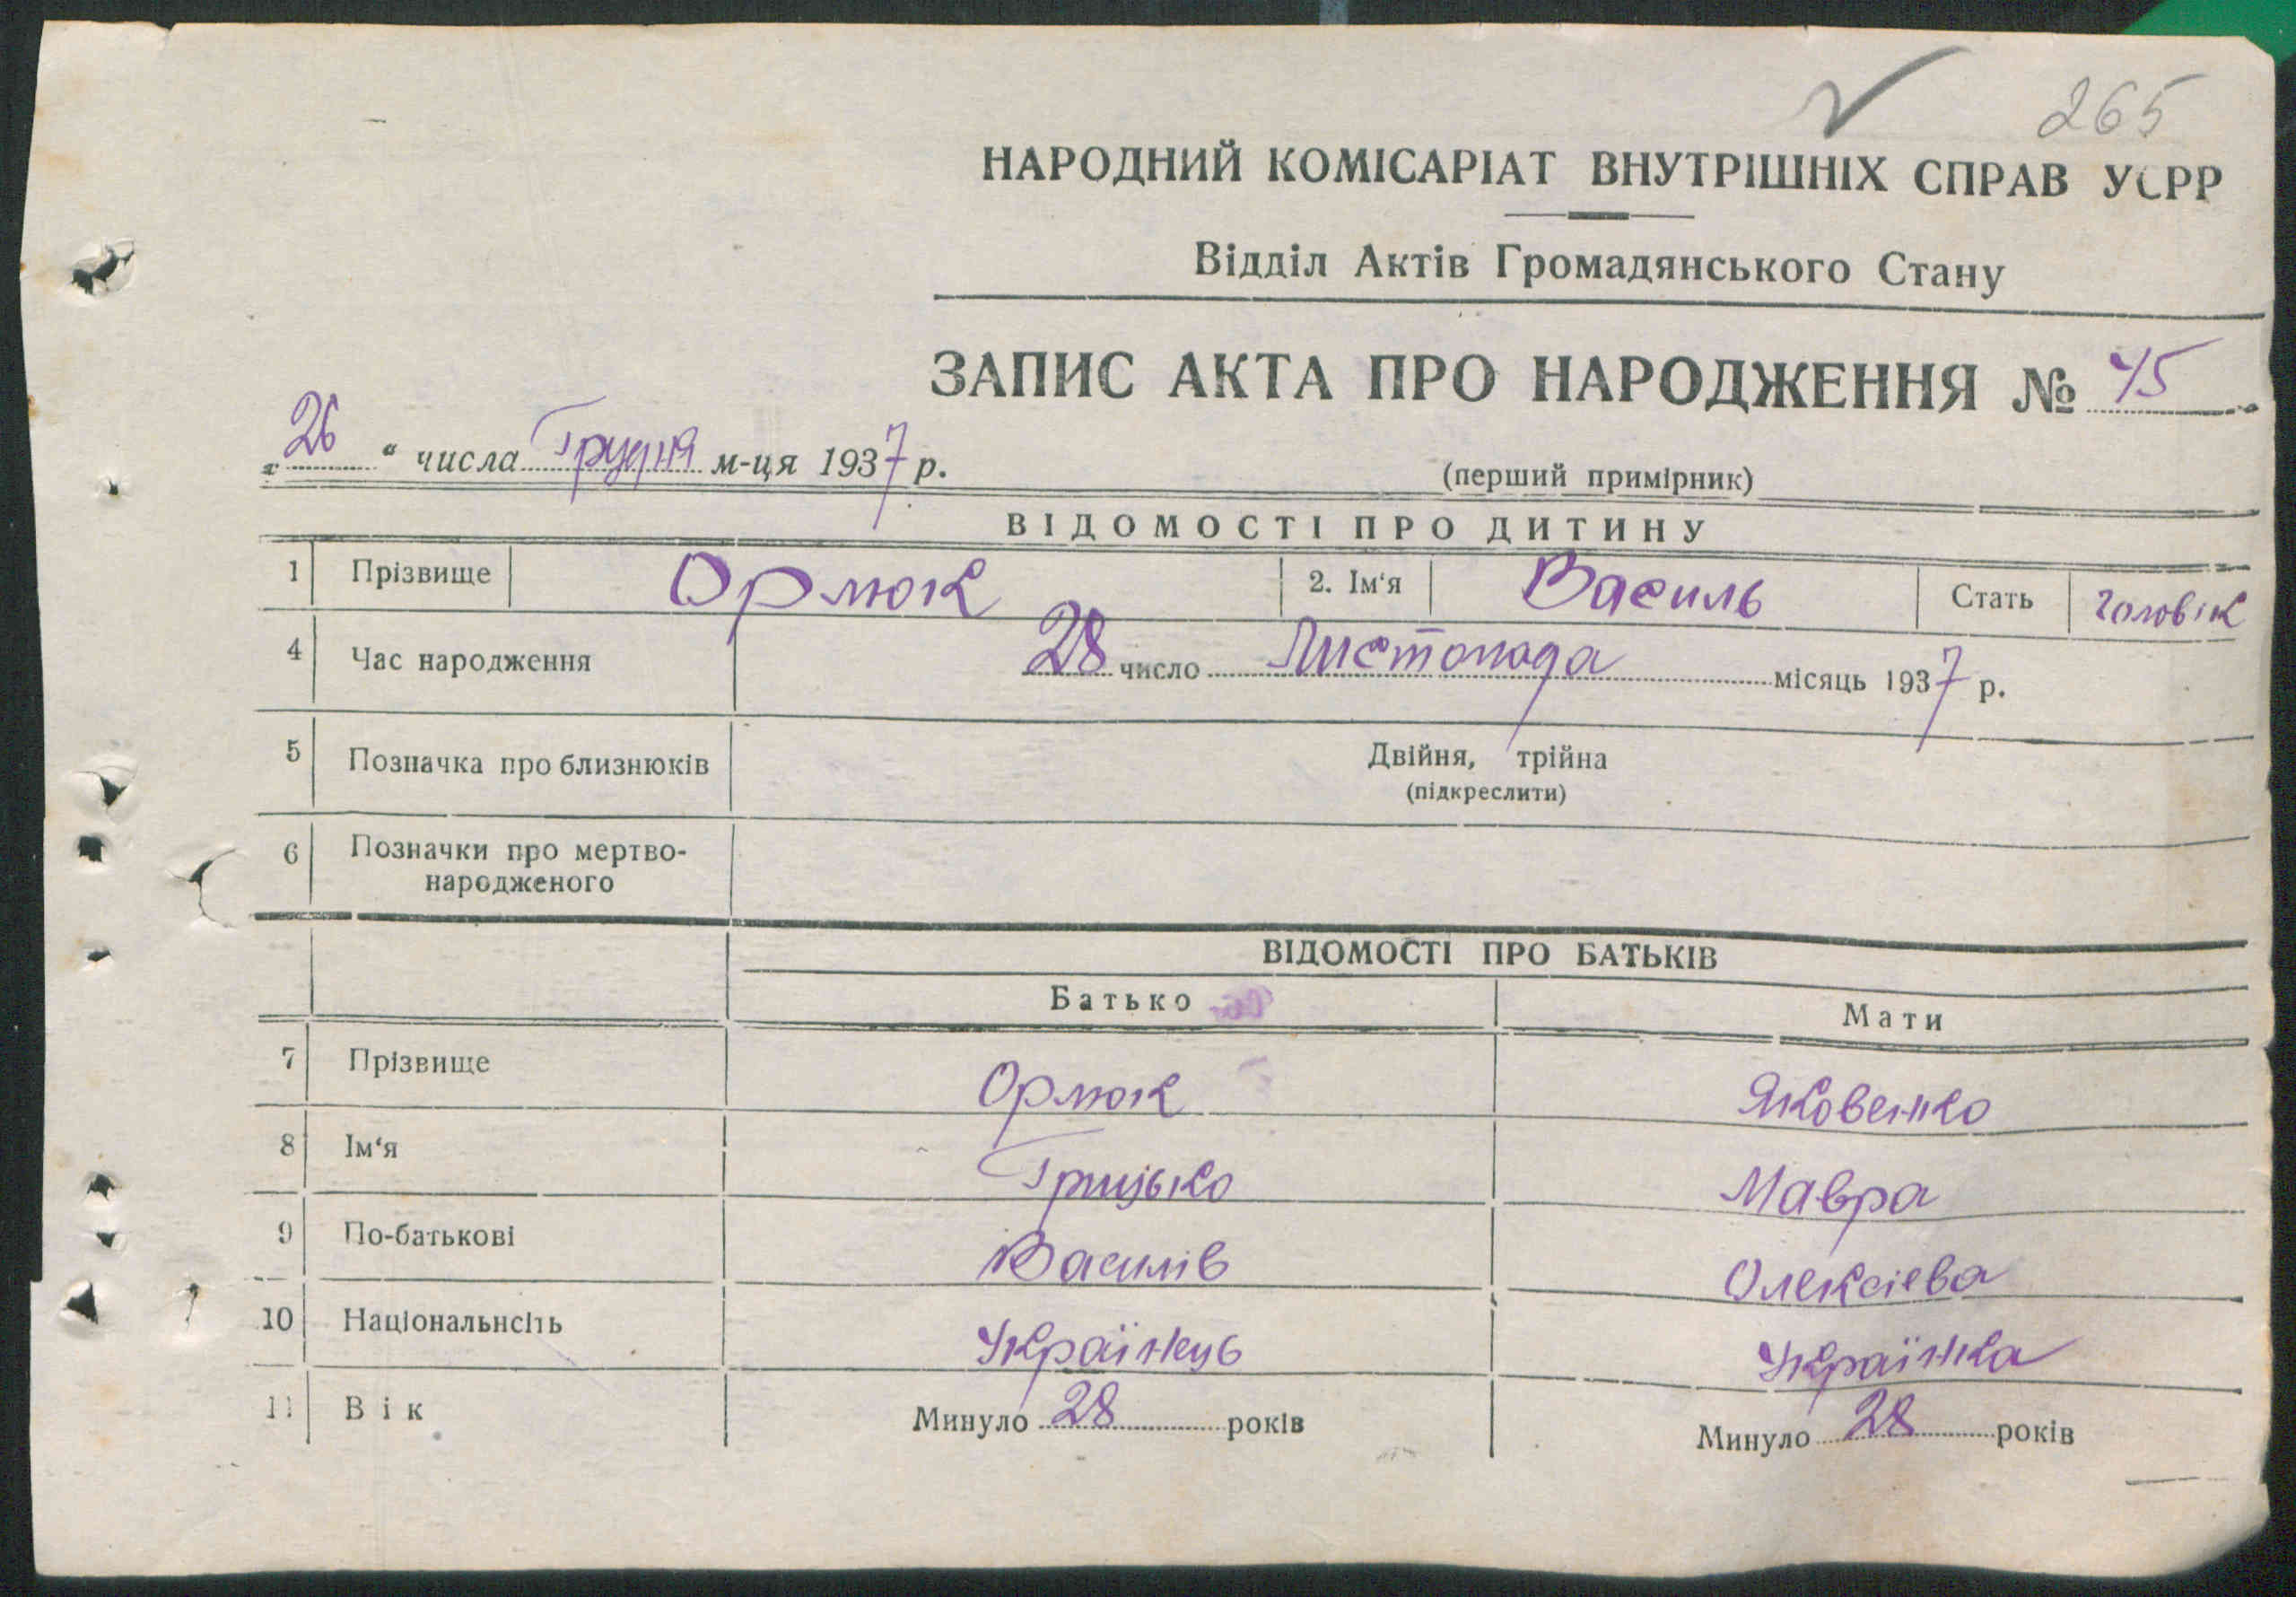 265
НАРОДНИЙ КОМІСАРІАТ ВНУТРІШНІХ СПРАВ УСРР
Відділ Актів Громадянського Стану
ЗАПИС АКТА ПРО НАРОДЖЕННЯ № 45
„26“ числа Грудня м-ця 1937 р.
(перший примірник)
ВІДОМОСТІ ПРО ДИТИНУ
1 Прізвище Орлюк 2. Ім‘я Василь Стать Чоловік
4 Час народження 28 число Листопада місяць 1937 р.
5 Позначка про близнюків Двійня, трійна
(підкреслити)
6 Позначки про мертво-
народженого
ВІДОМОСТІ ПРО БАТЬКІВ
Батько Мати
7 Прізвище Орлюк Яковенко
8 Ім‘я Грицько Мавра
9 По-батькові Василів Олексієва
10 Національнсіть Українець Українка
11 Вік Минуло 28 років Минуло 28 років